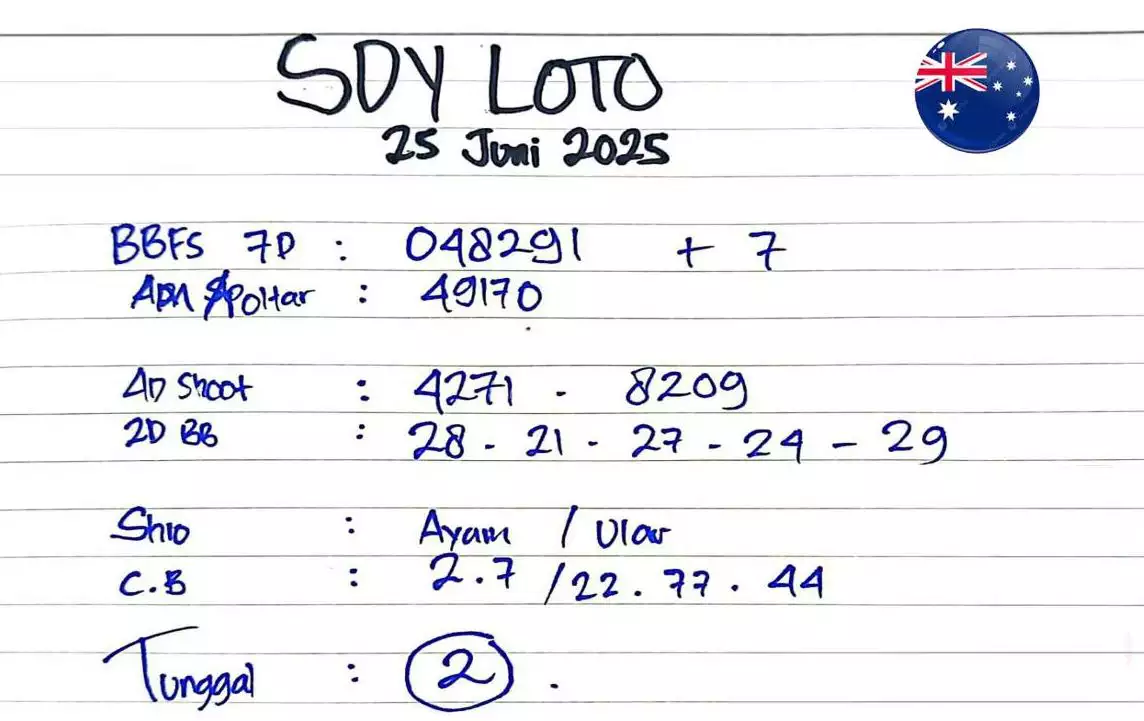 SDY LOTO
25 Juni 2025
BBFS 7D : 048291 + 7
: 49170
4D Shoot : 4271 - 8209
2D BB : 28 - 21 - 27 - 24 - 29
Shio : Ayam / Ular
C.B : 2.7 / 22 . 77 . 44
Tunggal : 2 .